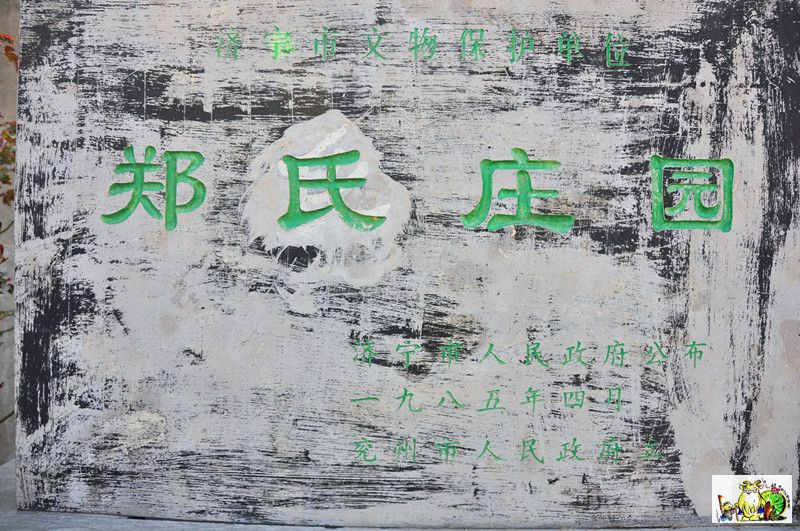 济宁市文物保护单位
郑氏庄园
济宁市人民政府公布
一九八五年四月
兖州市人民政府立